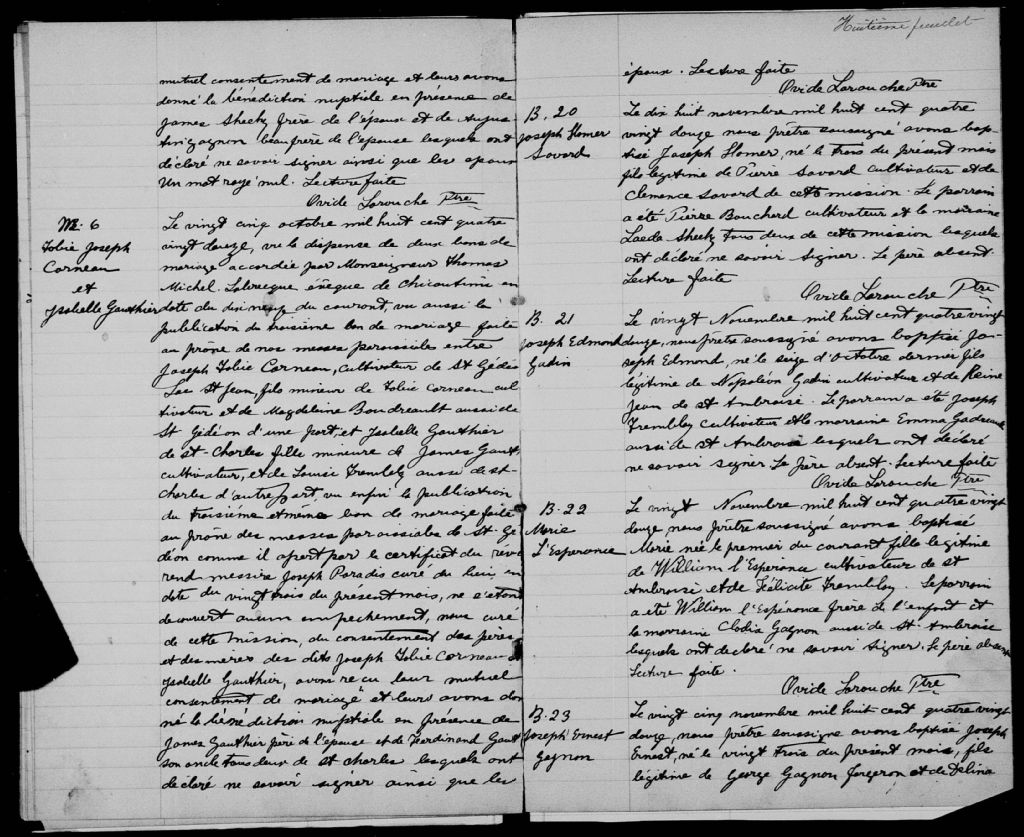 mutuel consentement de mariage et leurs avons
donné la bénédiction nuptiale en présence de
James Sheehy frère de l'époux et de
Gagnon beau frère de l'épouse lesquels ont
déclaré ne savoir signer ainsi que les époux
Un mot rayé nul. Lecture faite
Ovide Larouche Ptre
M. 6
Folie Joseph
Corneau
et
Isabelle Gauthier
Le vingt cinq octobre mil huit cent quatre
vingt douze, vu la dispense de deux bans de
mariage accordée par Monseigneur Thomas
Michel Labrecque évêque de Chicoutimi en
date du dix neuf du courant, vu aussi la
publication du troisième ban de mariage faite
au prône de nos messes paroissiale entre
Joseph Folie Corneau, cultivateur de St Gédéo
Lac St Jean, fils mineur de Folie Corneau cul
tivateur et de Magdeleine Boudreault aussi de
St Gédéon d'une part, et Isabelle Gauthier
de St-Charles fille mineure de James Gaut
cultivateur, et de Louise Tremblay aussi de st-
charles d'autre part, vu enfin la publication
du troisième et même ban de mariage faite
au prône des messes paroissiales de St Gé
déon comme il apert par le certificat du reve
rend messire Joseph Paradis curé du lieu, en
date du vingt trois du présent mois, ne s'étant
découvert aucun empechement, nous curé
de cette mission, du consentement des pères
et des mères des dits Joseph Folie Corneau et
Isabelle Gauthier, avons reçu leur mutuel
consentement de mariage et leur avons don
né la bénédiction nuptiale en présence de
James Gauthier père de l'épouse et de Ferdinand Gaut
son oncle tous deux de St charles lesquels ont
déclaré ne savoir signer ainsi que les
Huitième feuillet
époux. Lecture faite
Ovide Larouche Ptre
B. 20
Joseph Homer
Savard
Le dix huit novembre mil huit cent quatre
vingt douze nous prêtre soussigné avons bap
tisé Joseph Homer, né le trois du présent mois
fils légitime de Pierre Savard cultivateur et de
Clemence Savard de cette mission. Le parrain
a été Pierre Bouchard cultivateur et la marraine
Laeda Sheehy tous deux de cette mission lesquels
ont déclaré ne savoir signer. Le père absent.
Lecture faite
Ovide Larouche Ptre
B. 21
Joseph Edmond
Gadin
Le vingt Novembre mil huit cent quatre vingt
douze, nous prêtre soussigné avons baptisé Jo-
seph Edmond, né le seize d'Octobre dernier fils
légitime de Napoléon Gadin cultivateur et de Reine
Jean de st Ambroise. Le parrain a été Joseph
Tremblay cultivateur et la marraine Emma
aussi de st Ambroise lesquels ont déclaré
ne savoir signer. Le père absent. Lecture faite
Ovide Larouche Ptre
B. 22
Marie
L'Esperance
Le vingt Novembre mil huit cent quatre vingt
douze, nous prêtre soussigné avons baptisé
Marie née le premier du courant fille legitime
de William l'Espérance cultivateur de st
Ambroise et de Félicité Tremblay. Le parrain
a été William l'Espérance frère de l'enfant et
la marraine Clodia Gagnon aussi de St. Ambroise
lesquels ont declaré ne savoir signer. Le père absent
Lecture faite.
Ovide Larouche Ptre
B. 23
Joseph Ernest
Gagnon
Le vingt cinq novembre mil huit cent quatre vingt
douze, nous prêtre soussigné avons baptisé Joseph
Ernest, né le vingt trois du présent mois, fils
légitime de George Gagnon forgeron et de Delina